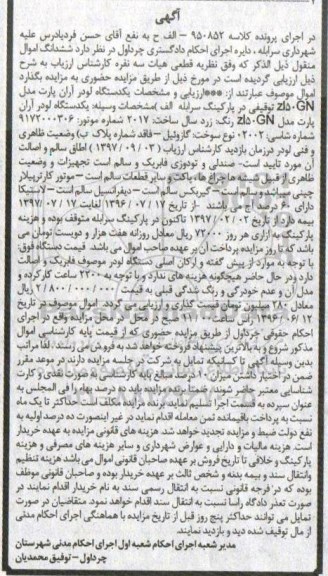 آگهی
در اجرای پرونده کلاسه ۹۵۰۸۵۲ – الف ح به نفع آقای حسن فردپادرس علیه
شهرداری سرابله ، دایره اجرای احکام دادگستری چرداول در نظر دارد ششدانگ اموال
منقول ذیل الذکر که وفق نظریه قطعی هیات سه نفره کارشناس ارزیاب به شرح
ذیل ارزیابی گردیده است در مورخ ذیل از طریق مزایده حضوری به مزایده بگذارد
اموال موصوف عبارتند از: ***ارزیابی و مشخصات یکدستگاه لودر آران پارت مدل
zl50GN توقیفی در پارکینگ سرابله الف )مشخصات وسیله: یکدستگاه لودر آران
پارت مدل zl50GN رنگ: زرد سال ساخت: ۲۰۱۷ شماره موتور: ۹۱۷۲۰۰۰۳۰۶
شماره شاسی: ۰۲۰۰۲ نوع سوخت: گازوئیل – فاقد شماره پلاک ب) وضعیت ظاهری
و فنی لودر درزمان بازدید کارشناس ارزیاب (۱۳۹۷/۰۳/۰۹ ) اطاق سالم و اصالت
آن مورد تایید است- صندلی و تودوزی فابریک و سالم است تجهیزات و وضعیت
ظاهری از قبیل شیشه ها چراغ ها، پاکت و سایر قطعات سالم است – موتور کاترپیلار
چینی میباشد وسالم است – گیربکس سالم است – دیفرانسیل سالم است – لاستیکا
دارای ۶۰ درصد آج می باشند -از تاریخ ۱۳۹۶/۰۷/۱۷ لغایت ۱۳۹۷/۰۷/۱۷
بیمه دارد از تاریخ ۱۳۹۷/۰۲/۰۲ تاکنون در پارکینگ سرابله متوقف بوده و هزینه
پارکینگ به ازاری هر روز ۷۲۰۰۰ ریال معادل روزانه هفت هزار و دویست تومان می
باشد که تا روز مزایده پرداخت آن بر عهده صاحب اموال می باشد. قیمت دستگاه فوق:
با توجه به موارد از پیش گفته و ارکان اصلی دستگاه لودر موصوف فابریک و اصالت
دارد و در حال حاضر هیچگونه هزینه های ندارد و با توجه به ۲۲۰۰ ساعت کارکرده و
مدل آن و عدم خودر گی و رنگ شدگی قبلی به قیمت ۲/۸۰۰/۰۰۰/۰۰۰ ریال
معادل ۲۸۰ میلیون تومان قیمت گذاری و ارزیابی می گردد. اموال موصوف در تاریخ
۱۳۹۶/۰۶/۱۲ راس ساعت ۱۱:۰۰ صبح در محل در محل مزایده واقع در اجرای
احکام حقوقی چرداول از طریق مزایده حضوری که از قیمت پایه کارشناسی اموال
مذکور شروع و به بالاترین پیشنهاد فروخته خواهد شد به فروش می رسند، لذا مراتب
بدین وسیله آگهی تا کسانیکه تمایل به شرکت در جلسه مزایده دارند، در موعد مقرر
ضمن در اختیار داشتن میزان ۱۰ درصد مبالغ پایه کارشناسی به صورت نقدی و کارت
شناسایی معتبر حاضر شوند، ضمنا برنده مزایده باید ده درصد بهاء را فی المجلس به
عنوان سپرده به قسمت اجرا تسلیم نماید، برنده مزایده مکلف است حداکثر تا یک ماه
نسبت به پرداخت باقیمانده ثمن معامله اقدام نماید در غیر اینصورت ده درصد اولیه به
نفع دولت ضبط و مزایده تجدید خواهد شد. هزینه های قانونی مزایده به عهده خریدار
است. هزینه مالیات و دارایی و عوارض شهرداری و سایر هزینه های مصرفی و هزینه
پارکینگ و خلافی تا تاریخ فروش بر عهده صاحبان قانونی اموال می باشد هزینه تنظیم
وانتقال سند و بیمه بدنه و شخص ثالث بر عهده خریدار بوده و صاحبان قانونی موظف
بوده که در فرجه قانونی نسبت به انتقال رسمی سند به نام خریدار اقدام نمایند در
صورت تعذر دادگاه راسا نسبت به انتقال سند اقدام خواهد نمود. متقاضیان در صورت
تمایل می توانند حداکثر پنج روز قبل از تاریخ مزایده با هماهنگی اجرای احکام مدنی
از مال توقیف شده دید و بازدید نمایند.
مدیر شعبه اجرای احکام شعبه اول اجرای احکام مدنی شهرستان
چرداول – توفیق محمدیان